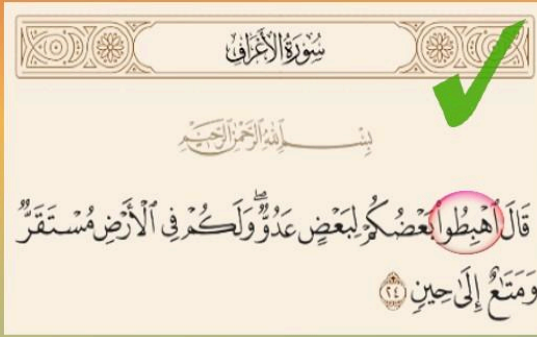 سُورَةُ الأَعْرَافِ
بِسْمِ ٱللَّهِ ٱلرَّحْمَٰنِ ٱلرَّحِيمِ
قَالَ ٱهْبِطُوا۟ بَعْضُكُمْ لِبَعْضٍ عَدُوٌّ ۖ وَلَكُمْ فِى ٱلْأَرْضِ مُسْتَقَرٌّ
وَمَتَٰعٌ إِلَىٰ حِينٍ ٢٤